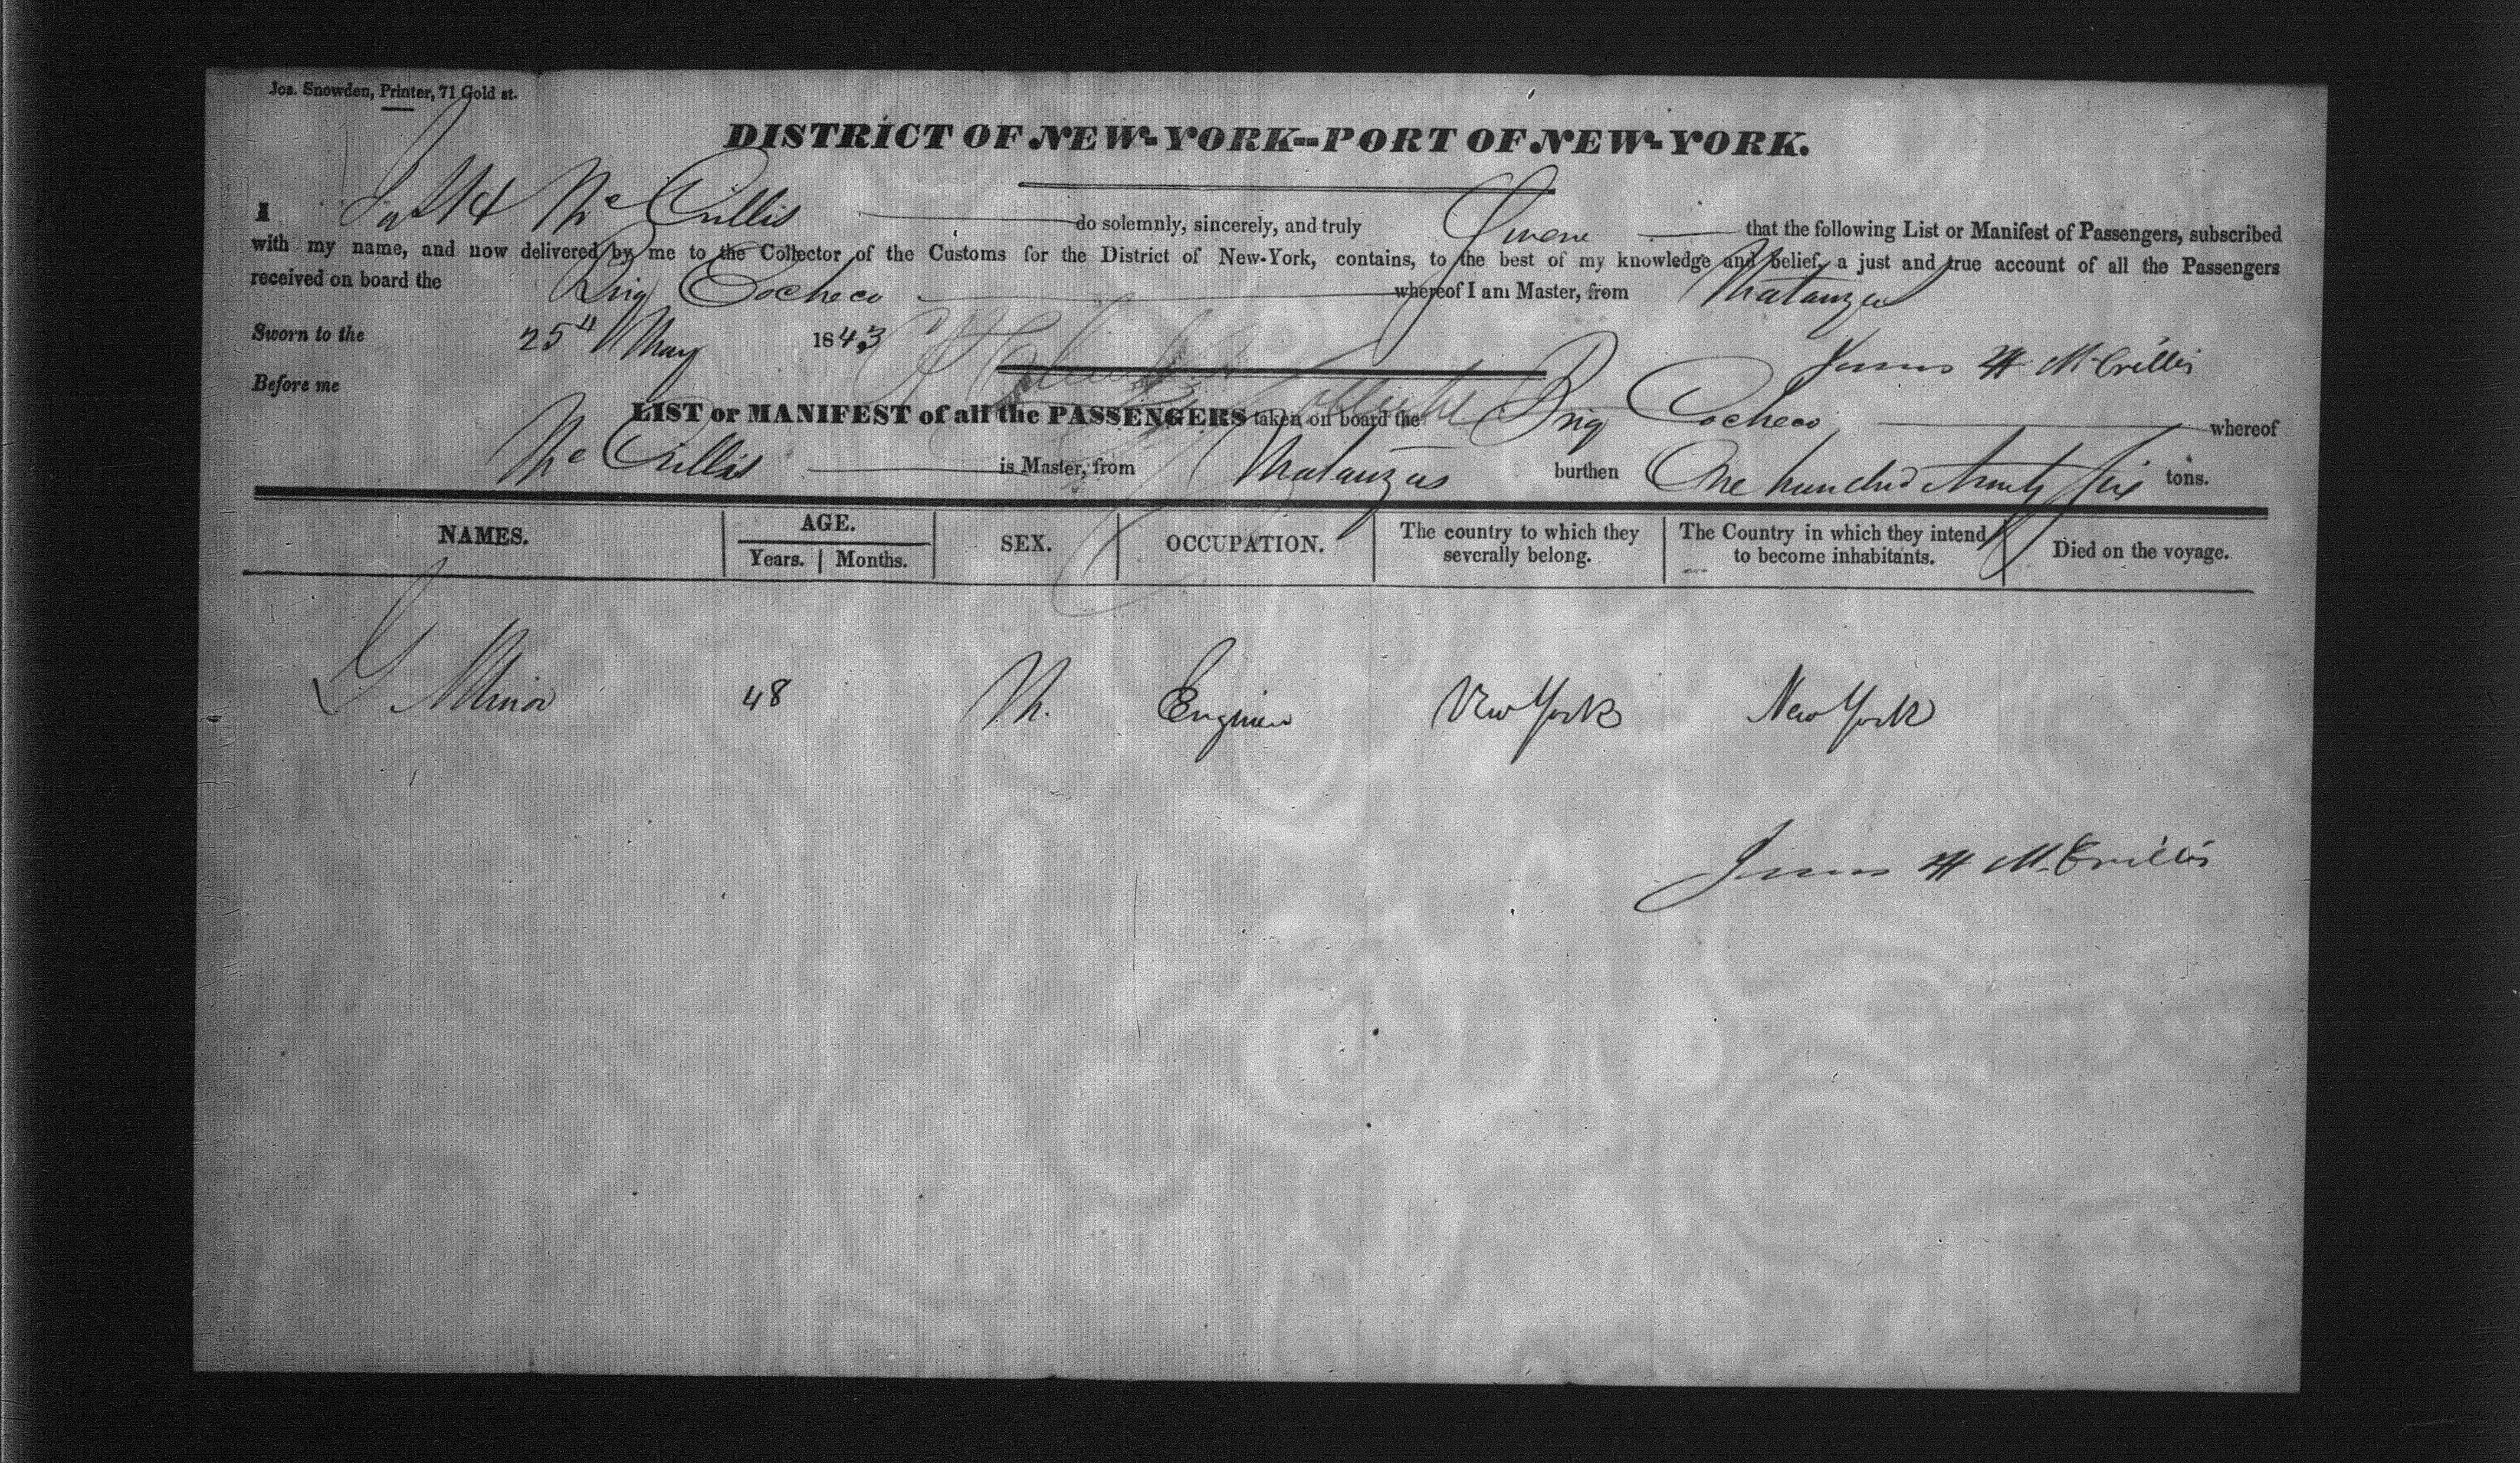 Jos. Snowden, Printer, 71 Gold st.
DISTRICT OF NEW-YORK--PORT OF NEW-YORK.
I Jas H Mc Crillis do solemnly, sincerely, and truly Swear that the following List or Manifest of Passengers, subscribed
with my name, and now delivered by me to the Collector of the Customs for the District of New-York, contains, to the best of my knowledge and belief, a just and true account of all the Passengers
received on board the Brig Cocheco whereof I am Master, from Matanzas
Sworn to the 25th May 1843
James H McCrillis
Before me
LIST or MANIFEST of all the PASSENGERS taken on board the Brig Cocheco whereof
Mc Crillis is Master, from Matanzas burthen One hundred ninety six tons.
NAMES. AGE. SEX. OCCUPATION. The country to which they severally belong. The Country in which they intend to become inhabitants. Died on the voyage.
Years. Months.
G Minor 48 M. Engineer New York New York
James H McCrillis